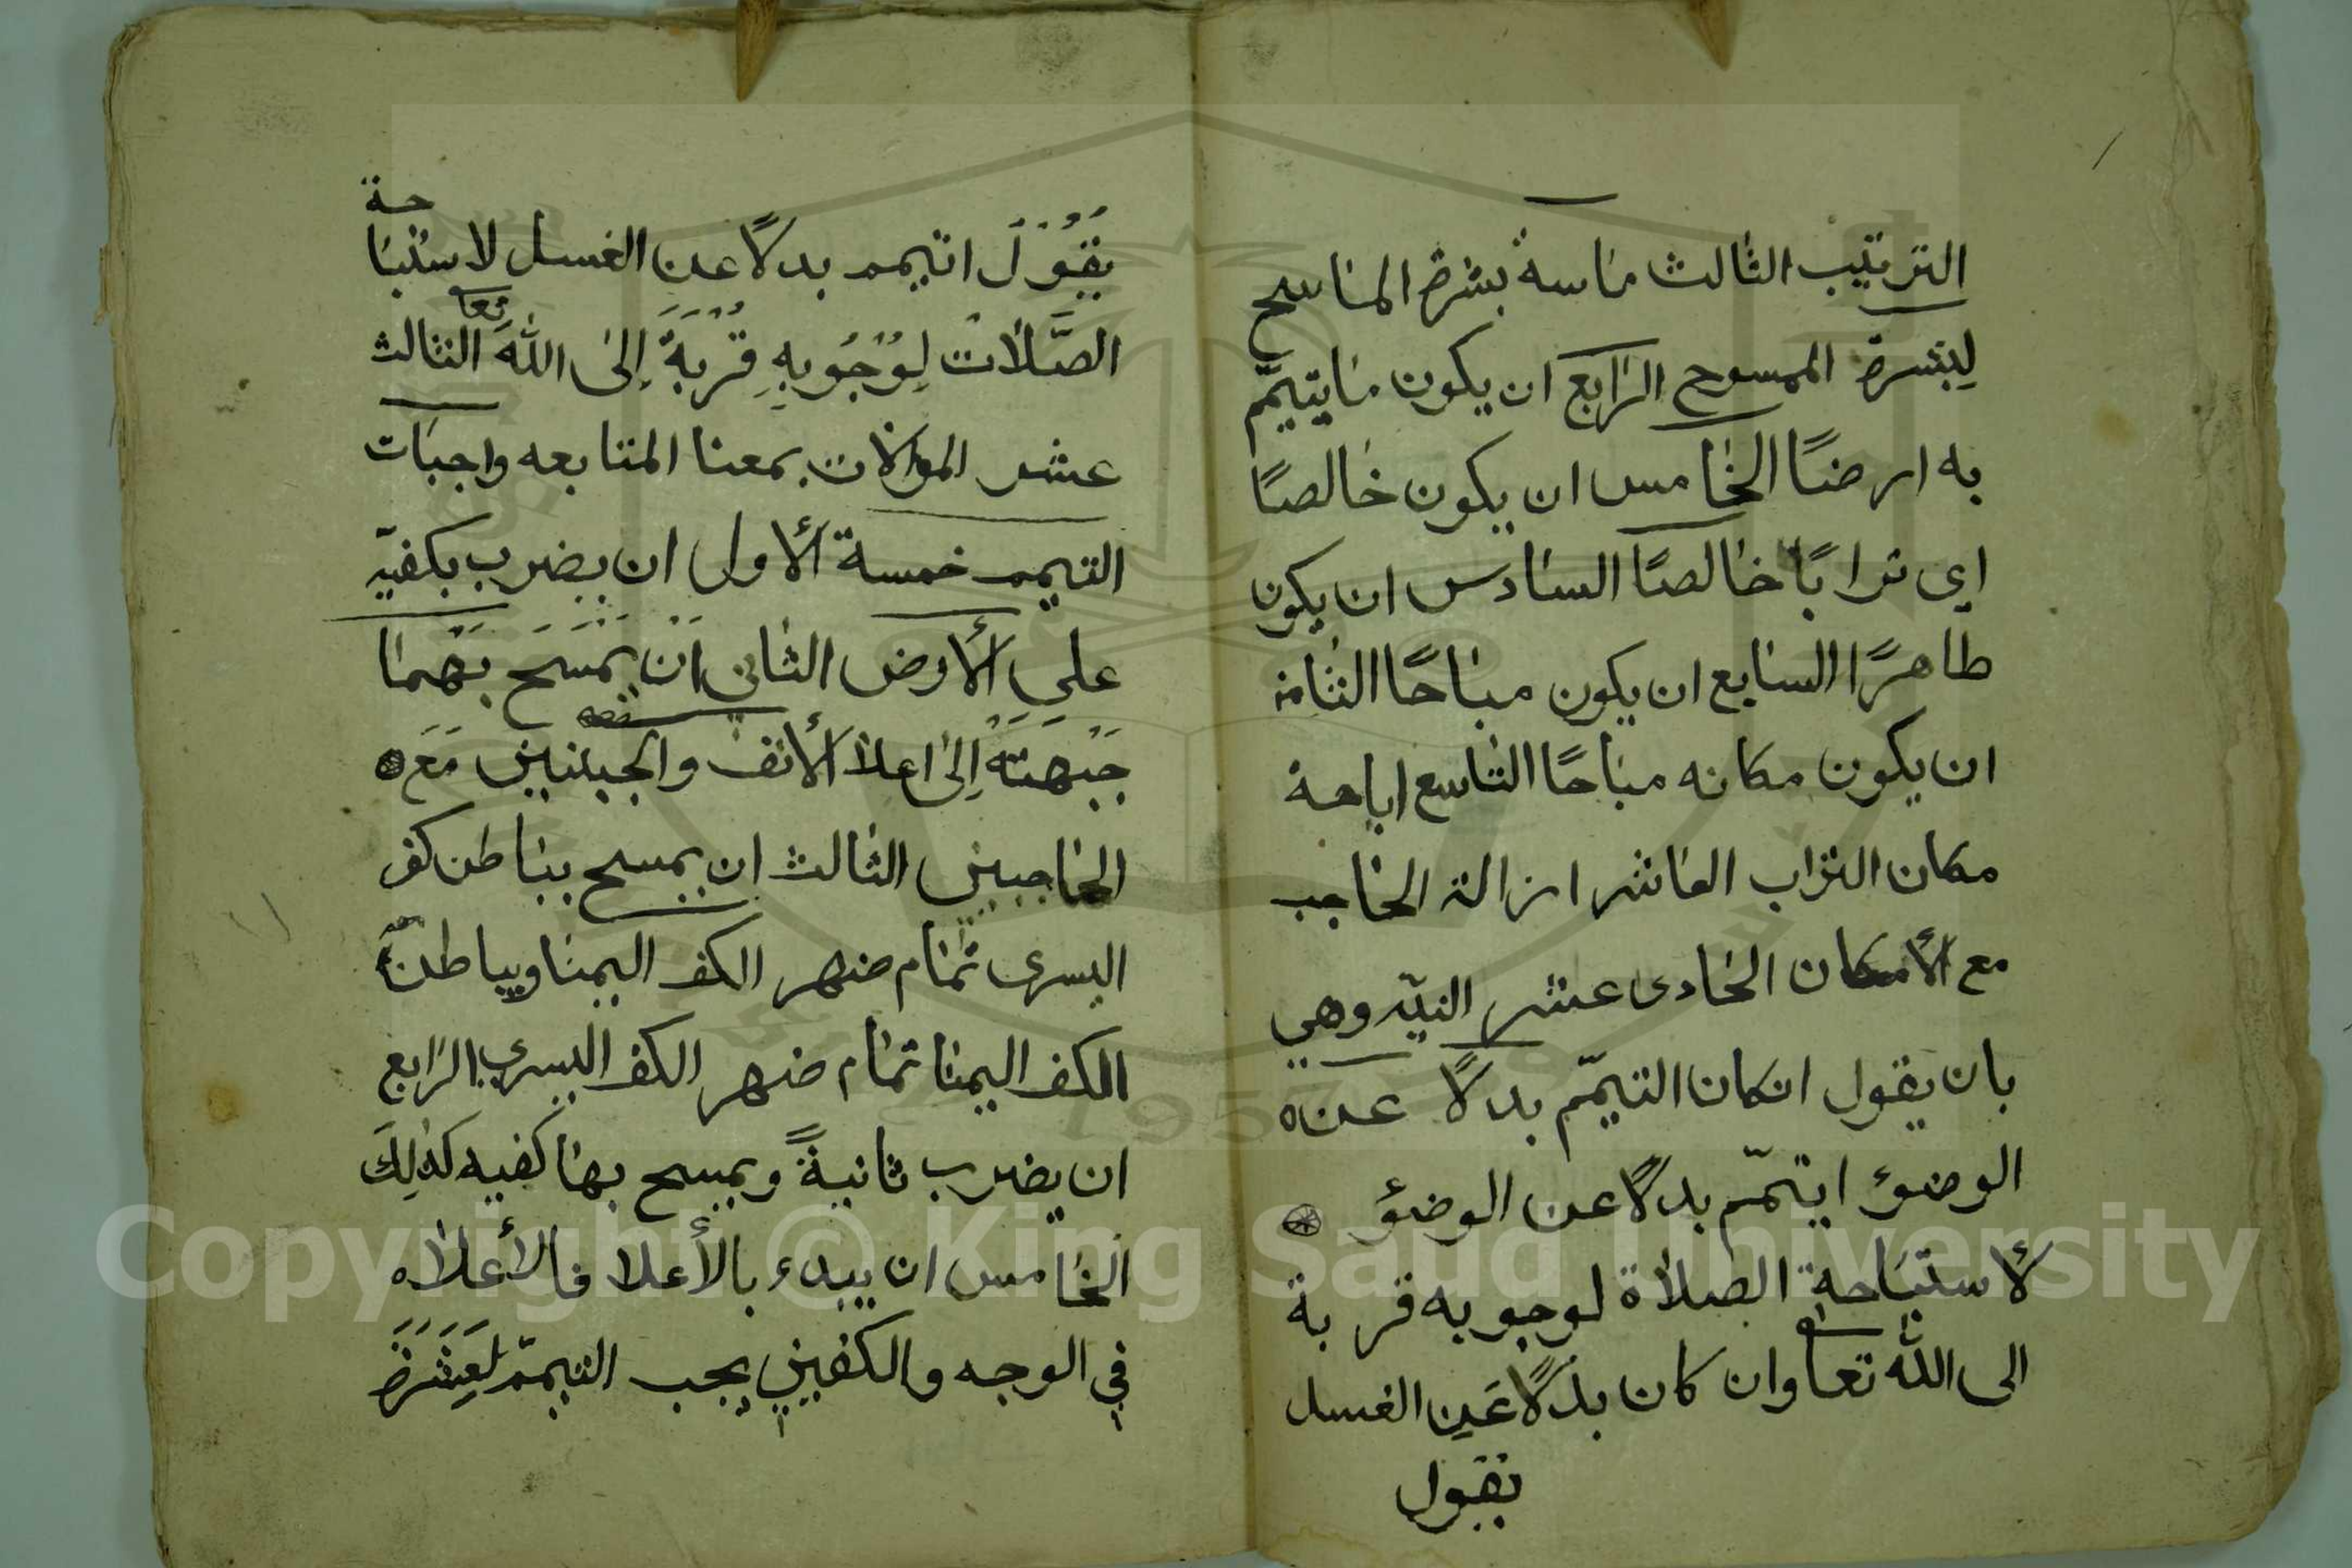 الترتيب الثالث مماسة بشرة الماسح
لبشرة الممسوح الرابع ان يكون ما يتيمّم
به ارضًا الخامس ان يكون خالصًا
اي ترابًا خالصًا السادس ان يكون
طاهرًا السابع ان يكون مباحًا الثامن
ان يكون مكانه مباحًا التاسع اباحة
مكان التراب العاشر ازالة الحاجب
مع الأمكان الحادى عشر النيّه وهي
بان يقول انكان التيمّم بدلًا عن
الوضوء ايتمّم بدلًا عن الوضؤ
لأستباحة الصلاة لوجوبه قربة
الى الله تعا وان كان بدلًا عَن الغسل
يقول
يَقُوْلَ اتيمم بدلًا عن الغسل لاستباحة
الصَّلات لِوُجُوبِهِ قُرْبَةً إِلى اللهَ تعا الثالث
عشر الموالات بمعنا المتابعه واجبات
التيمم خمسة ألاول ان يضرب بكفيّه
علي ألارض الثاني اَنْ يَمْسَحَ بهما
جَبْهَتَهَ اِلى اعلا ألانف والجبينين مَعَ
الحاجبين الثالث ان يمسح بباطن كف
اليسرى تمام ضهر الكف اليمنا وبباطن
الكف اليمنا تمام ضهر الكف اليسري الرابع
ان يضرب ثانيةً ويمسح بها كفيه كذلِكَ
الخامس ان يبدء بالأعلا فالأعلا
في الوجه والكفين يجب التيمّم لعَشَرَة
Copyright © King Saud University
1957